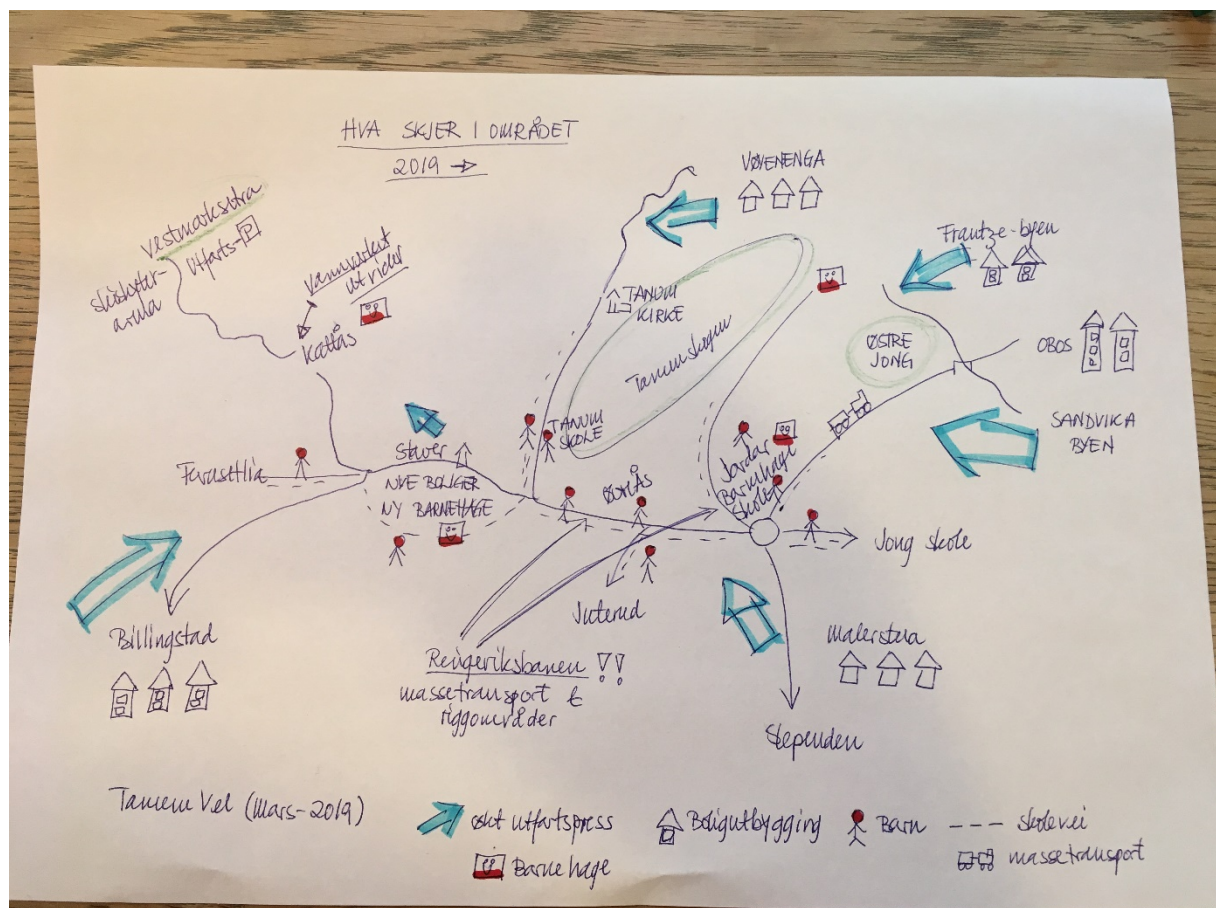 HVA SKJER I OMRÅDET
2019 →
VØYENENGA
Vestmarksetra
Utfarts-P
skiskyter-
arena
Vannverket
utvider
Kattås
Frantze-byen
TANUM
KIRKE
Tanumskogen
ØSTRE
JONG
OBOS
SANDVIKA
BYEN
TANUM
SKOLE
Staver
NYE BOLIGER
NY BARNEHAGE
Furastlia
ØORÅS
Jordar
Barnehage
Skole
Jong skole
Juterud
Billingstad
Malerstua
Ringeriksbanen !!
massetransport &
riggområder
Slependen
Tanum Vel (Mars-2019)
økt utfartspress
Boligutbygging
Barn
--- skolevei
Barnehage
massetransport